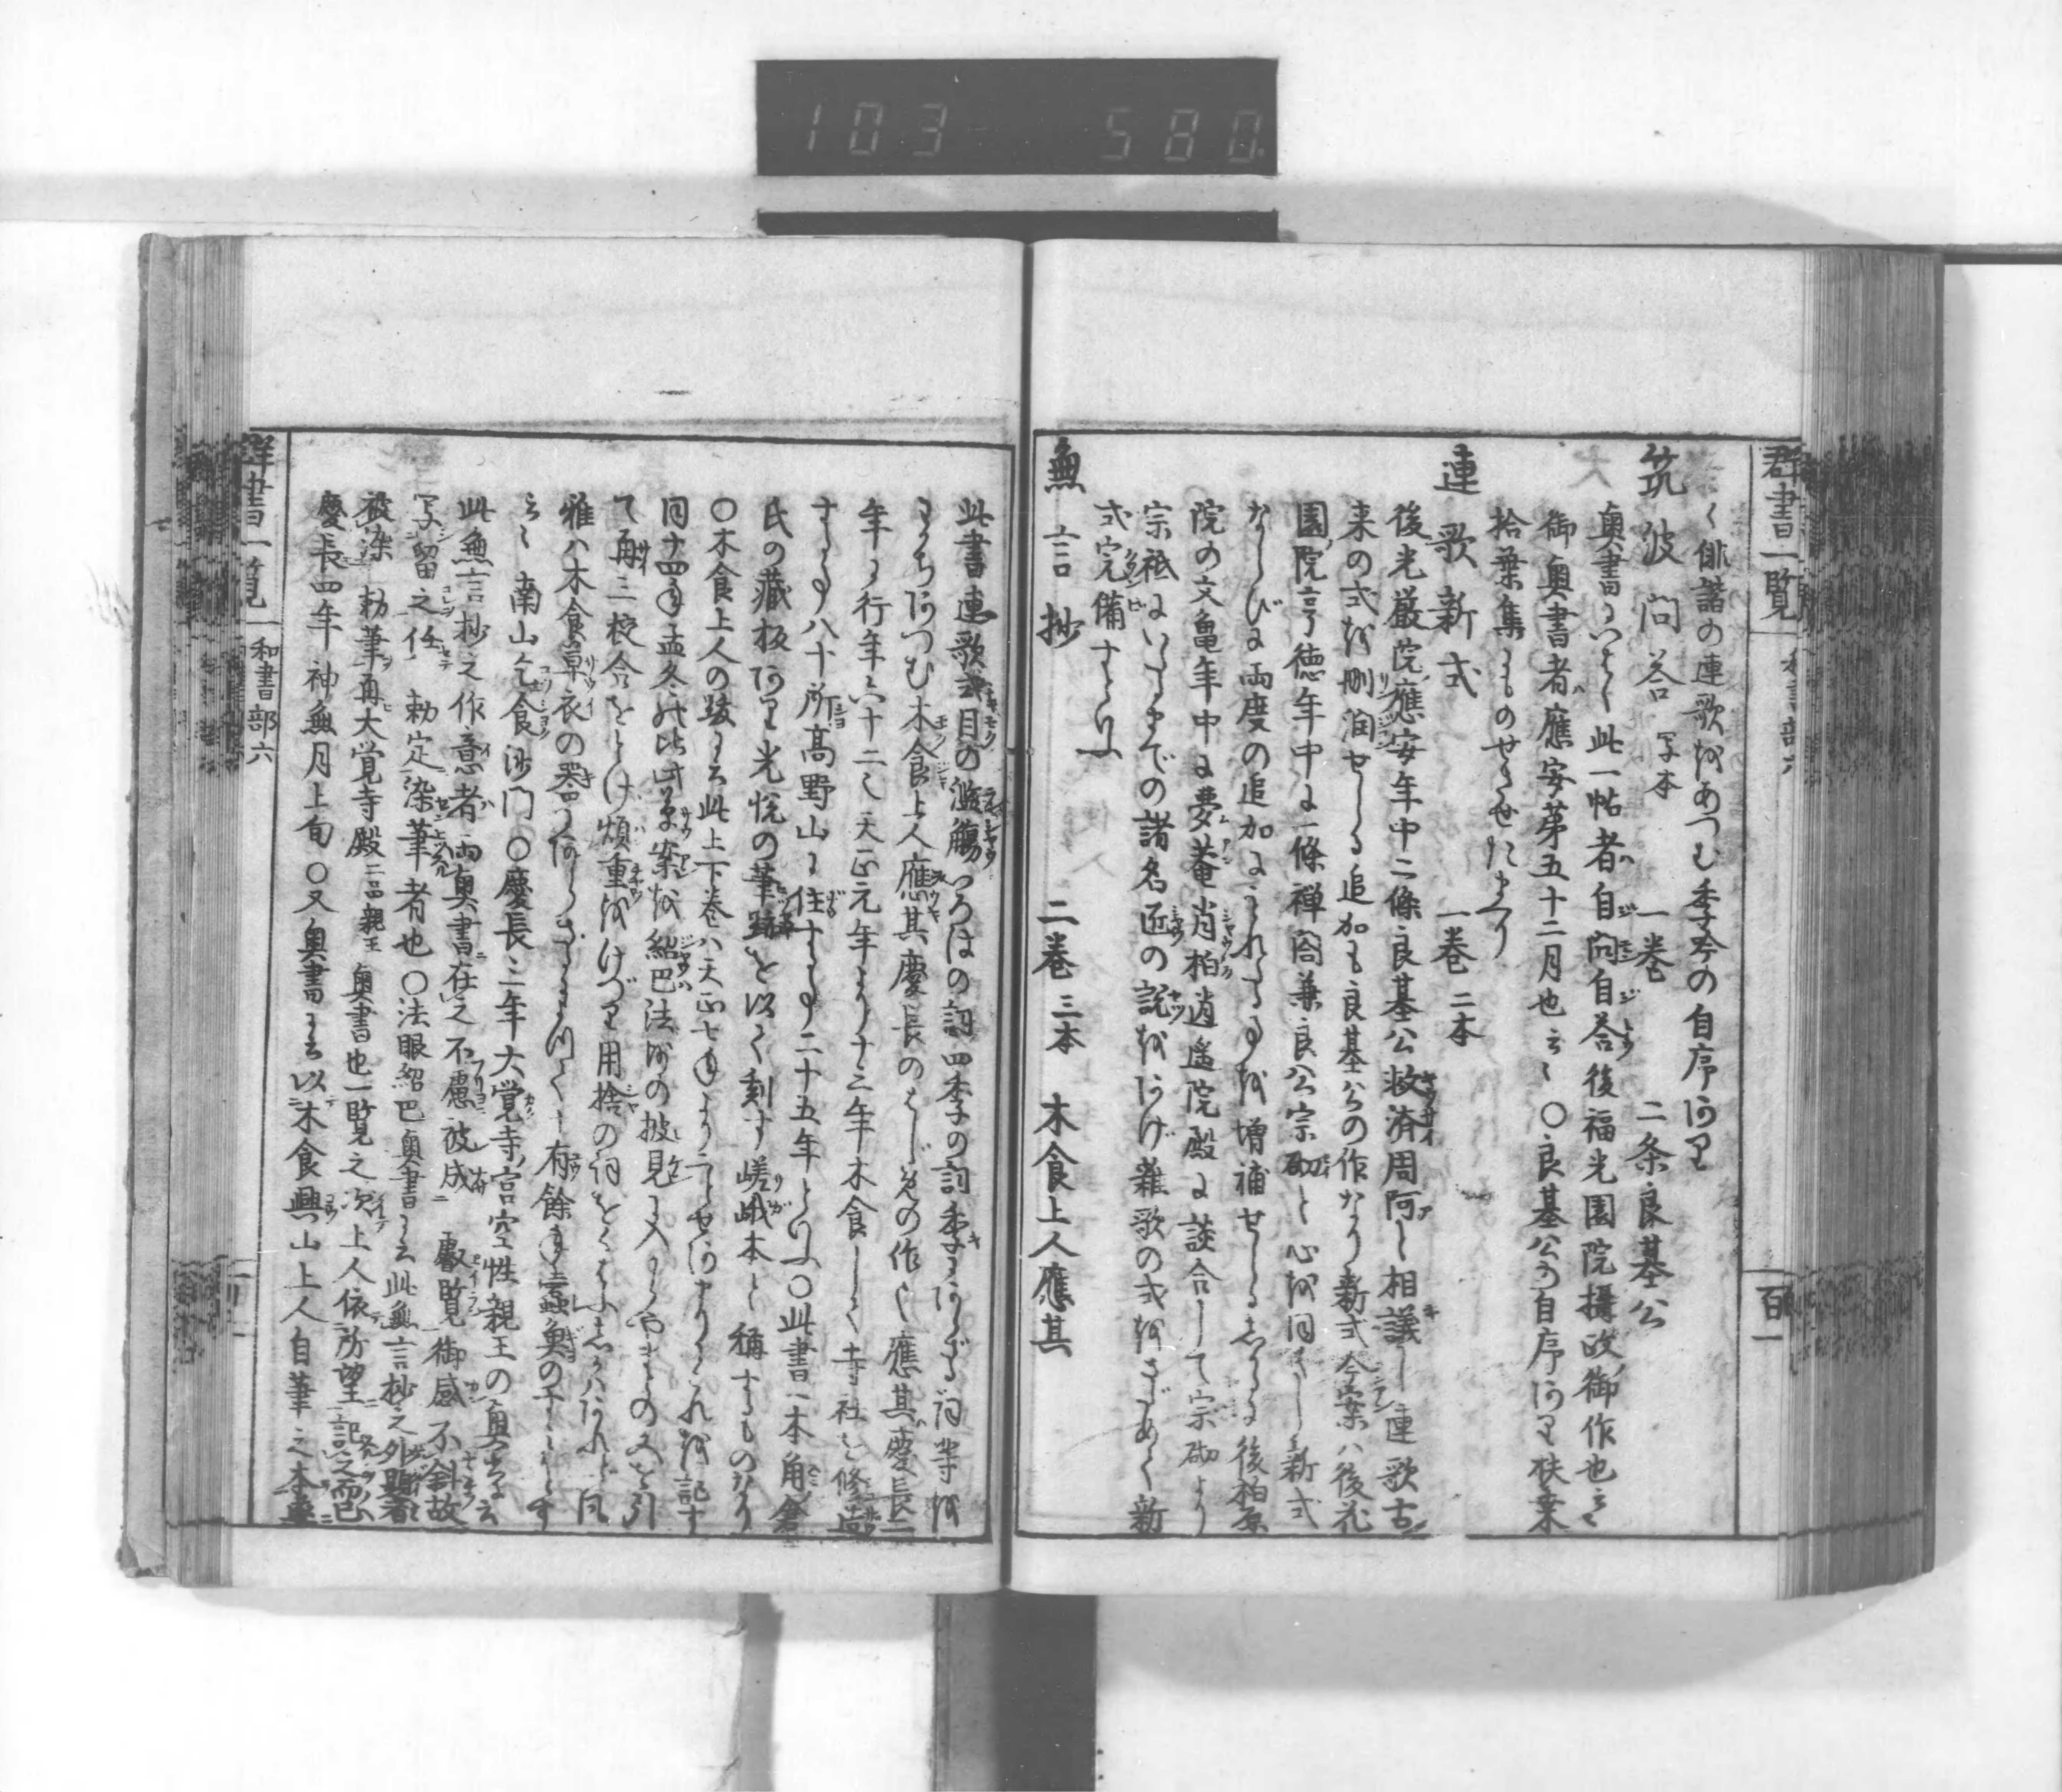 103 580
群書一覧 和書部六 百一
く俳諧の連歌をあつむ季吟の自序あり
筑波問答 写本 一巻 二条良基公
奥書にいはく此一帖者自問自答後福光園院摂政御作也云々
御奥書者應安第五十二月也云々〇良基公の自序あり扶桒
拾葉集にものせさせたまへり
連歌新式 一巻 二本
後光厳院應安年中二條良基公救済周阿と相議し連歌古
来の式を刪潤せらる追加も良基公の作なり新式今案ハ後花
園院享徳年中に一條禅閤兼良公宗砌と心を同くし新式
ならびに両度の追加にもれたる事を増補せらるしかるに後柏原
院の文亀年中に夢菴肖柏逍遥院殿に談合して宗砌より
宗祇にいたるまでの諸名匠の説をあげ雑歌の式をさだめて新
式完備すといふ
無言抄 二巻 三本 木食上人應其
此書連歌式目の濫觴いろはの詞四季の詞季にあらざる詞等を
わかちあつむ木食上人應其慶長のはじめの作也應其慶長二
年に行年六十二也天正元年より十二年木食して寺社を修造
する事八十所高野山に住する事二十五年といふ〇此書一本角倉
氏の蔵板あり光悦の筆跡を以て刻す嵯峨本と稱するものなり
〇木食上人の跋に云此上下巻ハ天正七年より
同十四年孟冬の比此草案を紹巴法橋の披見に入
て再三校合をとげ煩重をけづり用捨の詞を
雅ハ木食草衣の器に 有餘年蠧魚の
云く南山乞食沙門〇慶長三年大覚寺宮空性親王の奥書に云
此無言抄之作意者両奥書在之不慮被成 叡覧御感不斜故
写留之任 勅定染筆者也〇法眼紹巴奥書に云此無言抄之外題者
被染 勅筆再大覚寺殿二品親王 奥書也一覧之次上人依所望記之而已
慶長四年神無月上旬〇又奥書に云以木食興山上人自筆之本
群書一覧 和書部六